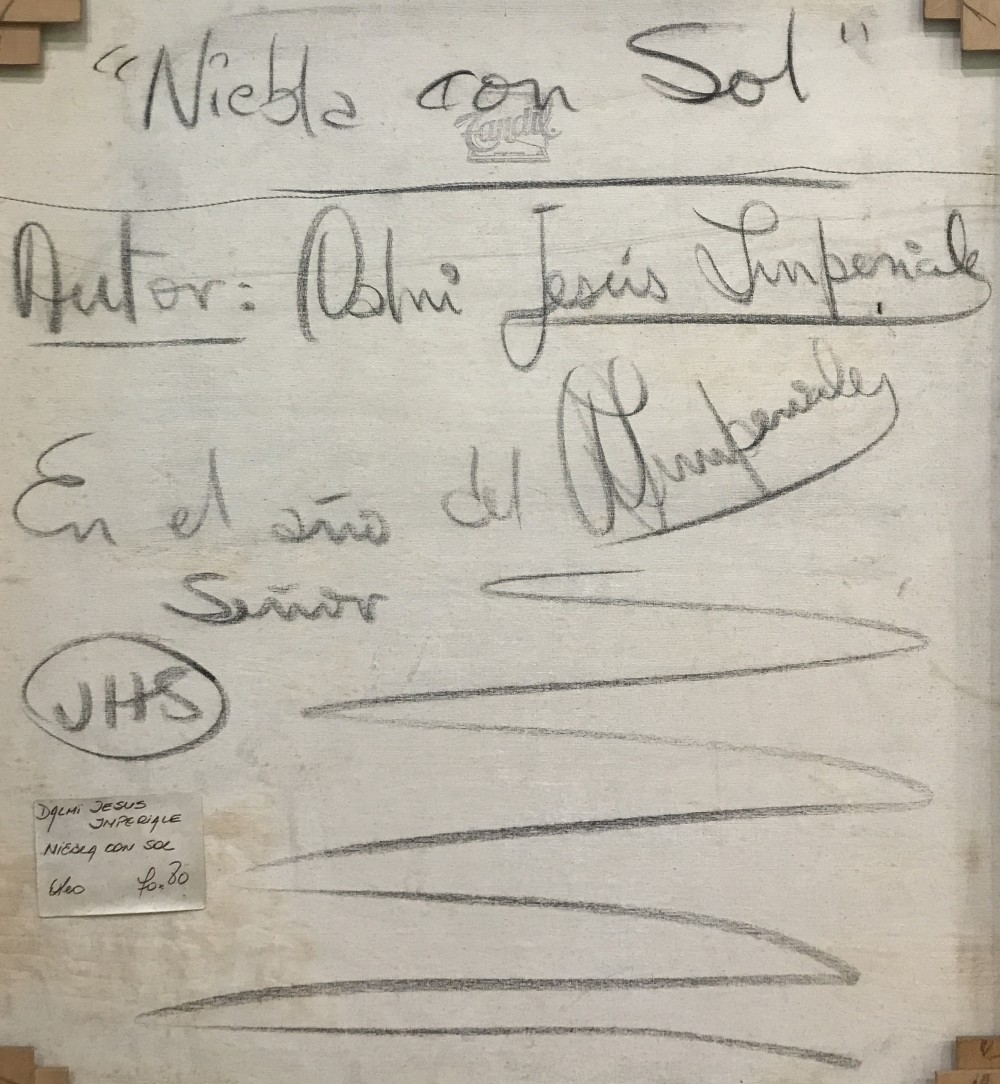 "Niebla con Sol"
Tandil
Autor: Dalmi Jesús Imperiale
Imperiale
En el año del
Señor
JHS
DALMI JESUS
IMPERIALE
NIEBLA CON SOL
Oleo 70.80